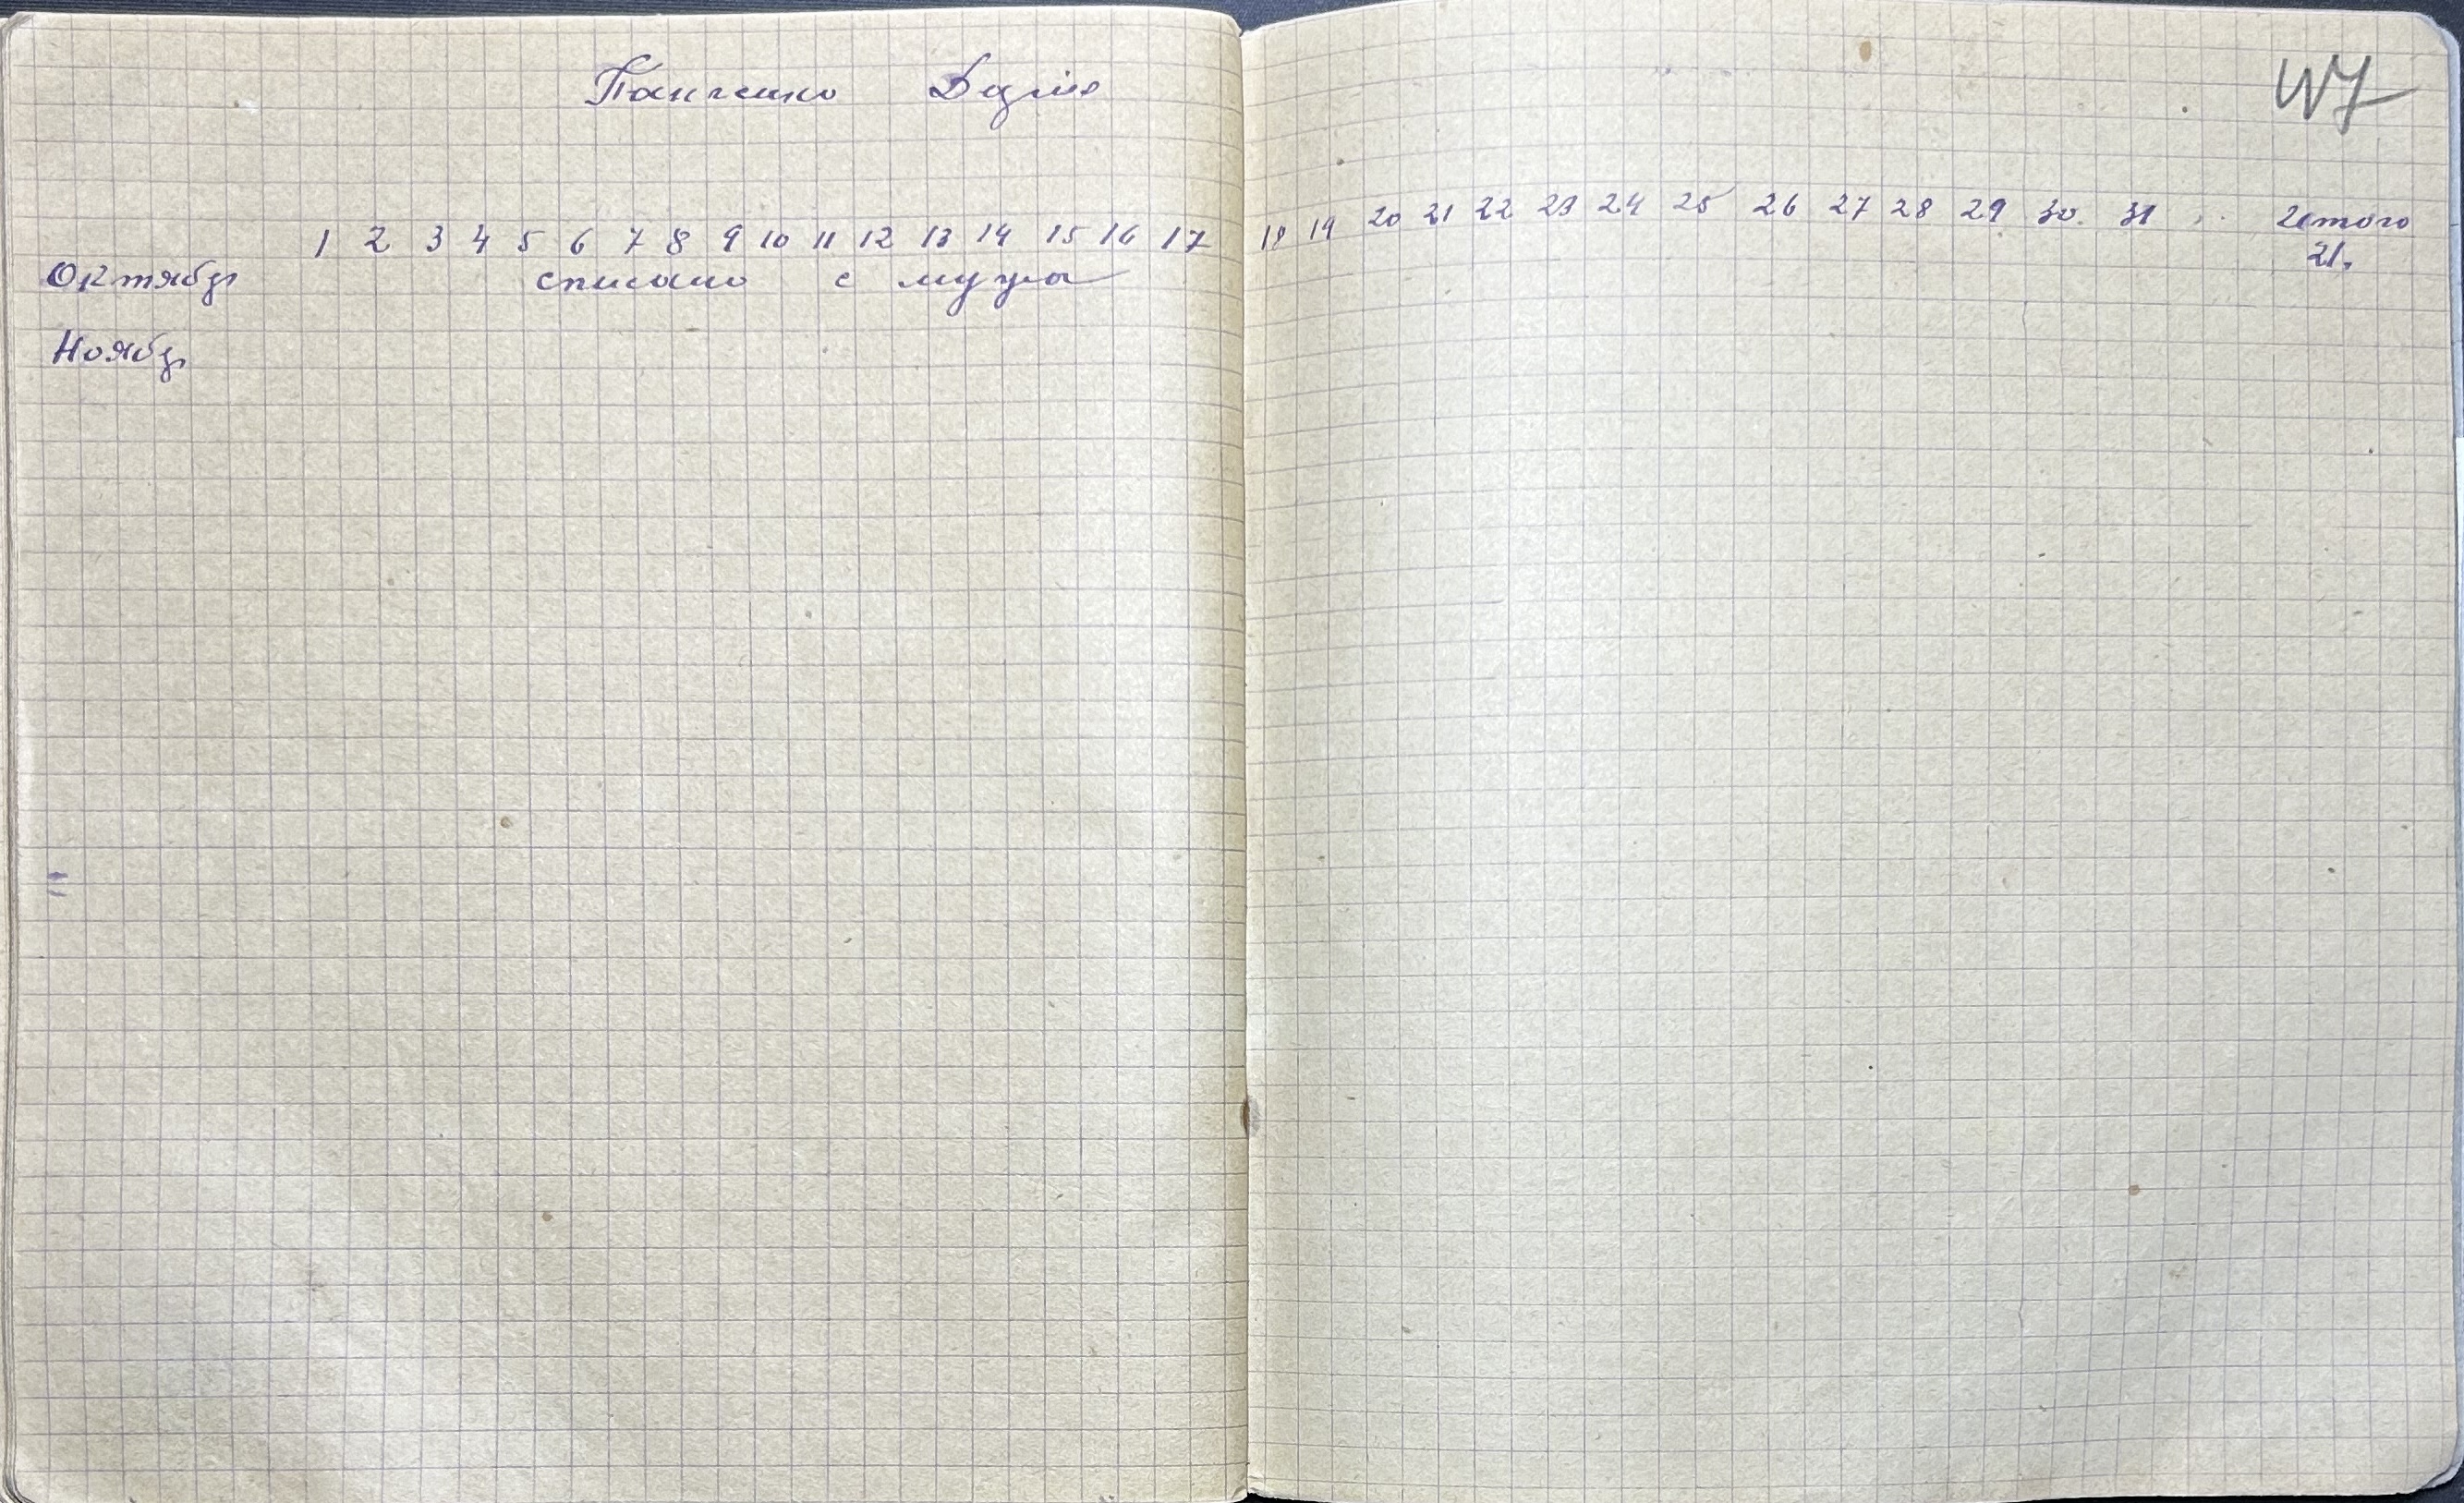 Панченко Дария
1 2 3 4 5 6 7 8 9 10 11 12 13 14 15 16 17 18 19 20 21 22 23 24 25 26 27 28 29 30. 31 Итого
21.
Октябр списано с
Ноябр